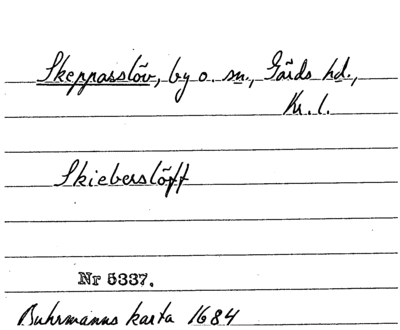 Skeppsslöv, by o. sn., Gärds hd.,
Kr. l.
Skieberslöff
Nr 5337.
Buhrmanns karta 1684